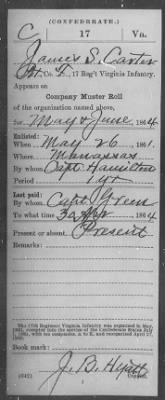 (CONFEDERATE.)
C 17 Va.
James S. Carter
Pvt., Co. F, 17 Reg't Virginia Infantry.
Appears on
Company Muster Roll
of the organization named above,
for May & June, 1864
Enlisted:
When May 26, 1861.
Where Manassas
By whom Capt. Hamilton
Period 1 yr
Last paid:
By whom Capt. Green
To what time 30, 1864
Present or absent Present
Remarks:
The 17th Regiment Virginia Infantry was
Book mark:
J. B. Hyatt
(642) Copyist.